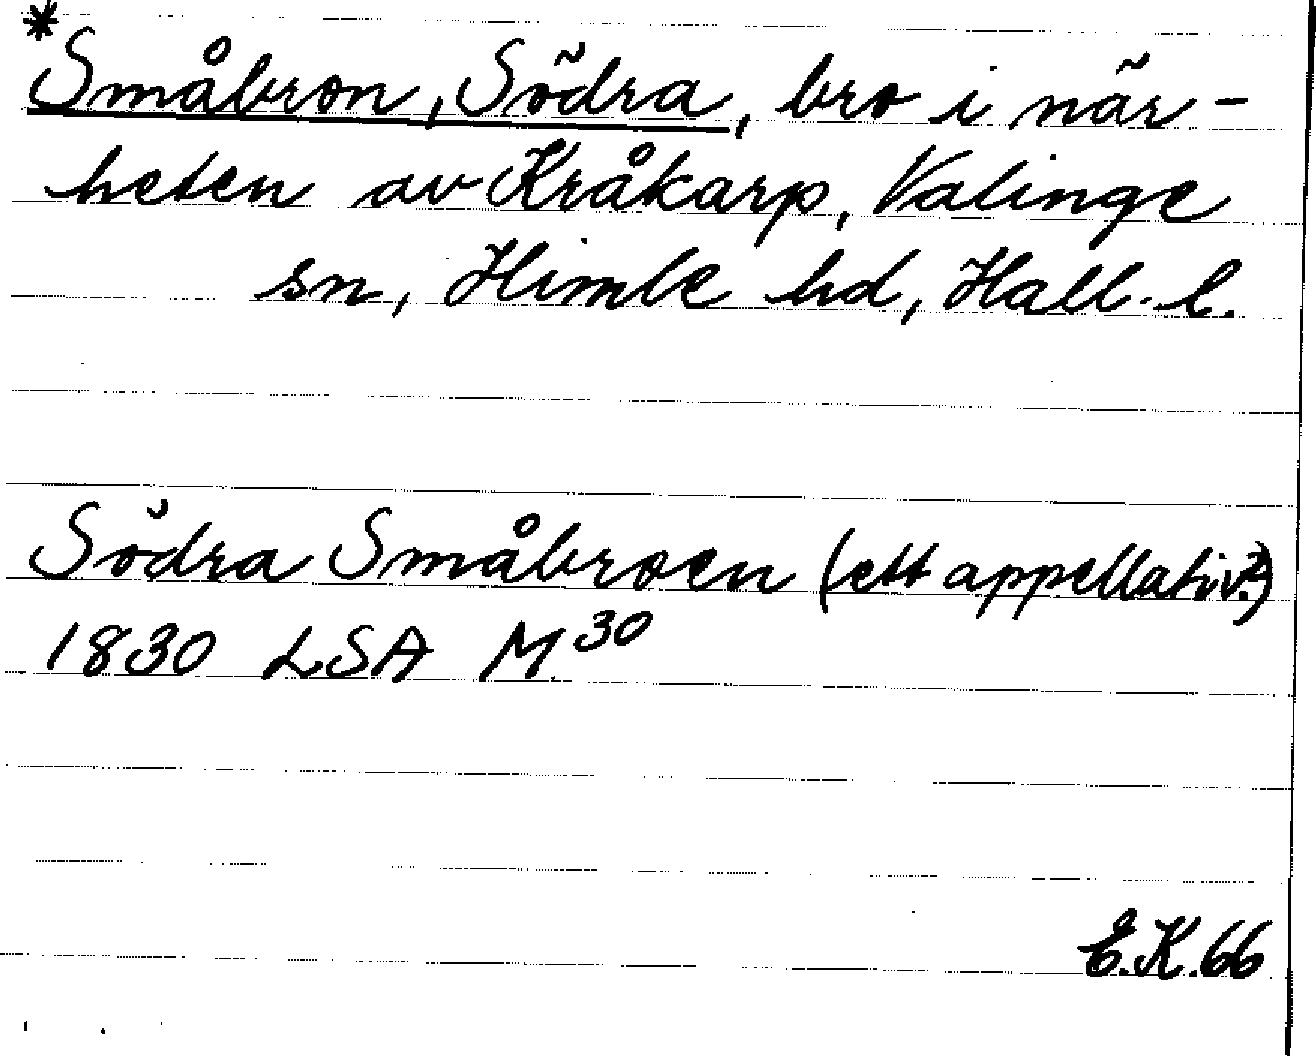 *Småbron, Södra, bro i när-
heten av Kråkarp, Valinge
sn, Himle hd, Hall. l.
Södra Småbroen (ett appellativ?)
1830 LSA M30
E.K. 66